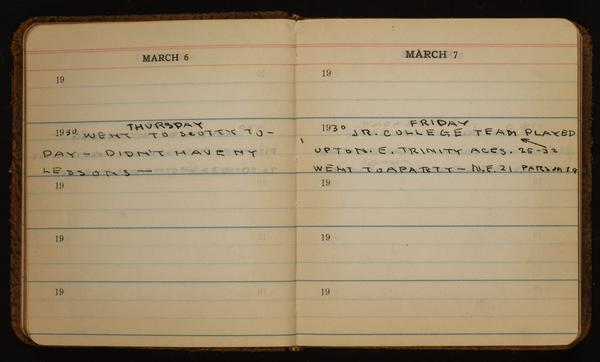 MARCH 6
19
THURSDAY
1930. WENT TO SCOTTY TO-
DAY - DIDN'T HAVE MY
LESSONS —
19
19
19
MARCH 7
19
FRIDAY
1930 JR. COLLEGE TEAM PLAYED
UPTON. E. TRINITY ACES. 26-32
WENT TO A PARTY - N.E. 21
19
19
19